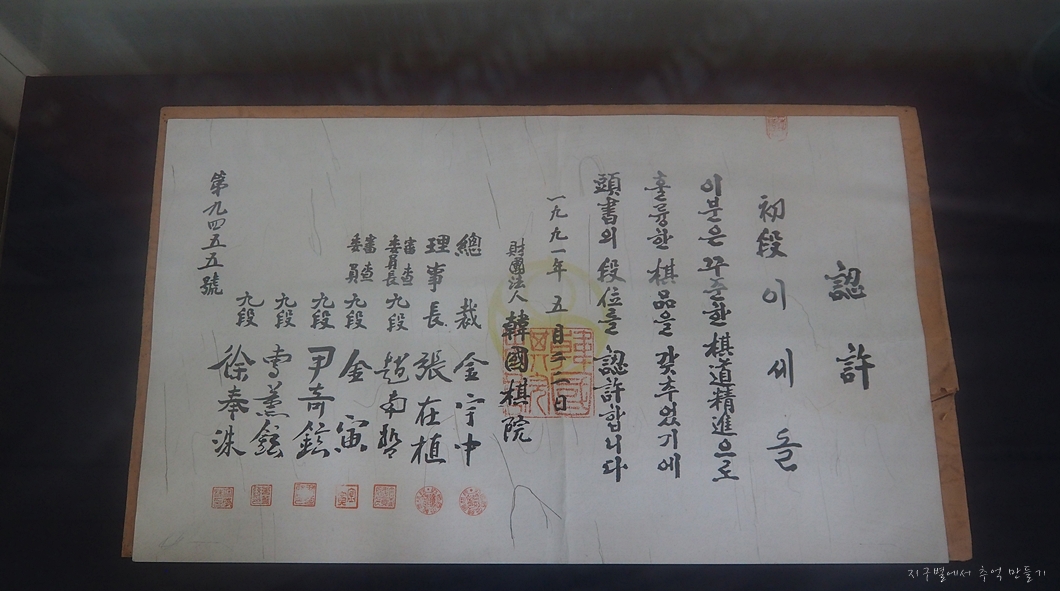 認許
初段 이세돌
이분은 꾸준한 棋道精進으로
훌륭한 棋品을 갖추었기에
頭書의 段位를 認許합니다
一九九一年 五月二二日
財團法人 韓國棋院
總裁 金宇中
理事長 張在植
審査委員長 九段 趙南哲
審査委員 九段 金寅
九段 尹奇鉉
九段 曺薰鉉
九段 徐奉洙
第九四五五號
지구별에서 추억 만들기